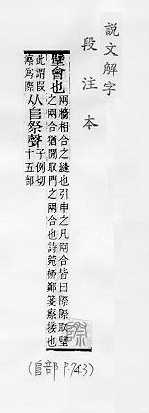 說文解字
段注本
壁會也
兩牆相合之縫也引申之凡兩合皆曰際際取壁
之兩合猶閒取門之兩合也詩菀柳鄭箋瘵接也
此謂叚
瘵爲際
从𨸏祭聲
子例切
十五部
(𨸏部 P.743)